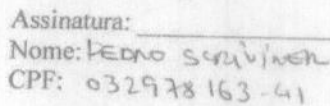 Assinatura:
Nome: PEDRO SCRIVINER
CPF: 032978163-41